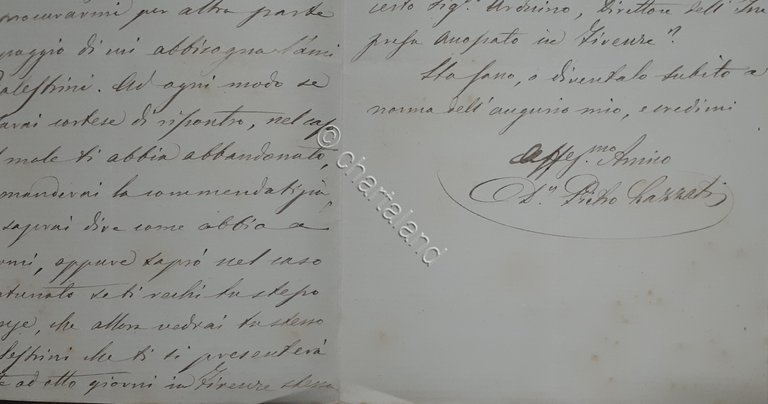 procurarmi per altra parte
appoggio di cui abbisogna l'ami
Palestrini. Ad ogni modo se
sarai cortese di riscontro, nel cas
l male ti abbia abbandonato,
manderai la commendatizia,
saprai dire come abbia a
rmi, oppure saprò nel caso
rtunato se ti rechi tu stesso
che allora vedrai tu stesso
lestrini che ti si presenterà
te ad otto giorni in Firenze stessa
certo Sigr. Arduino, Direttore dell'Im
presa Anonata in Firenze".
Sta sano, o diventalo subito a
norma dell'augurio mio, e credimi
Affezmo Amico
Dr. Pietro Lazzati
© chartaland